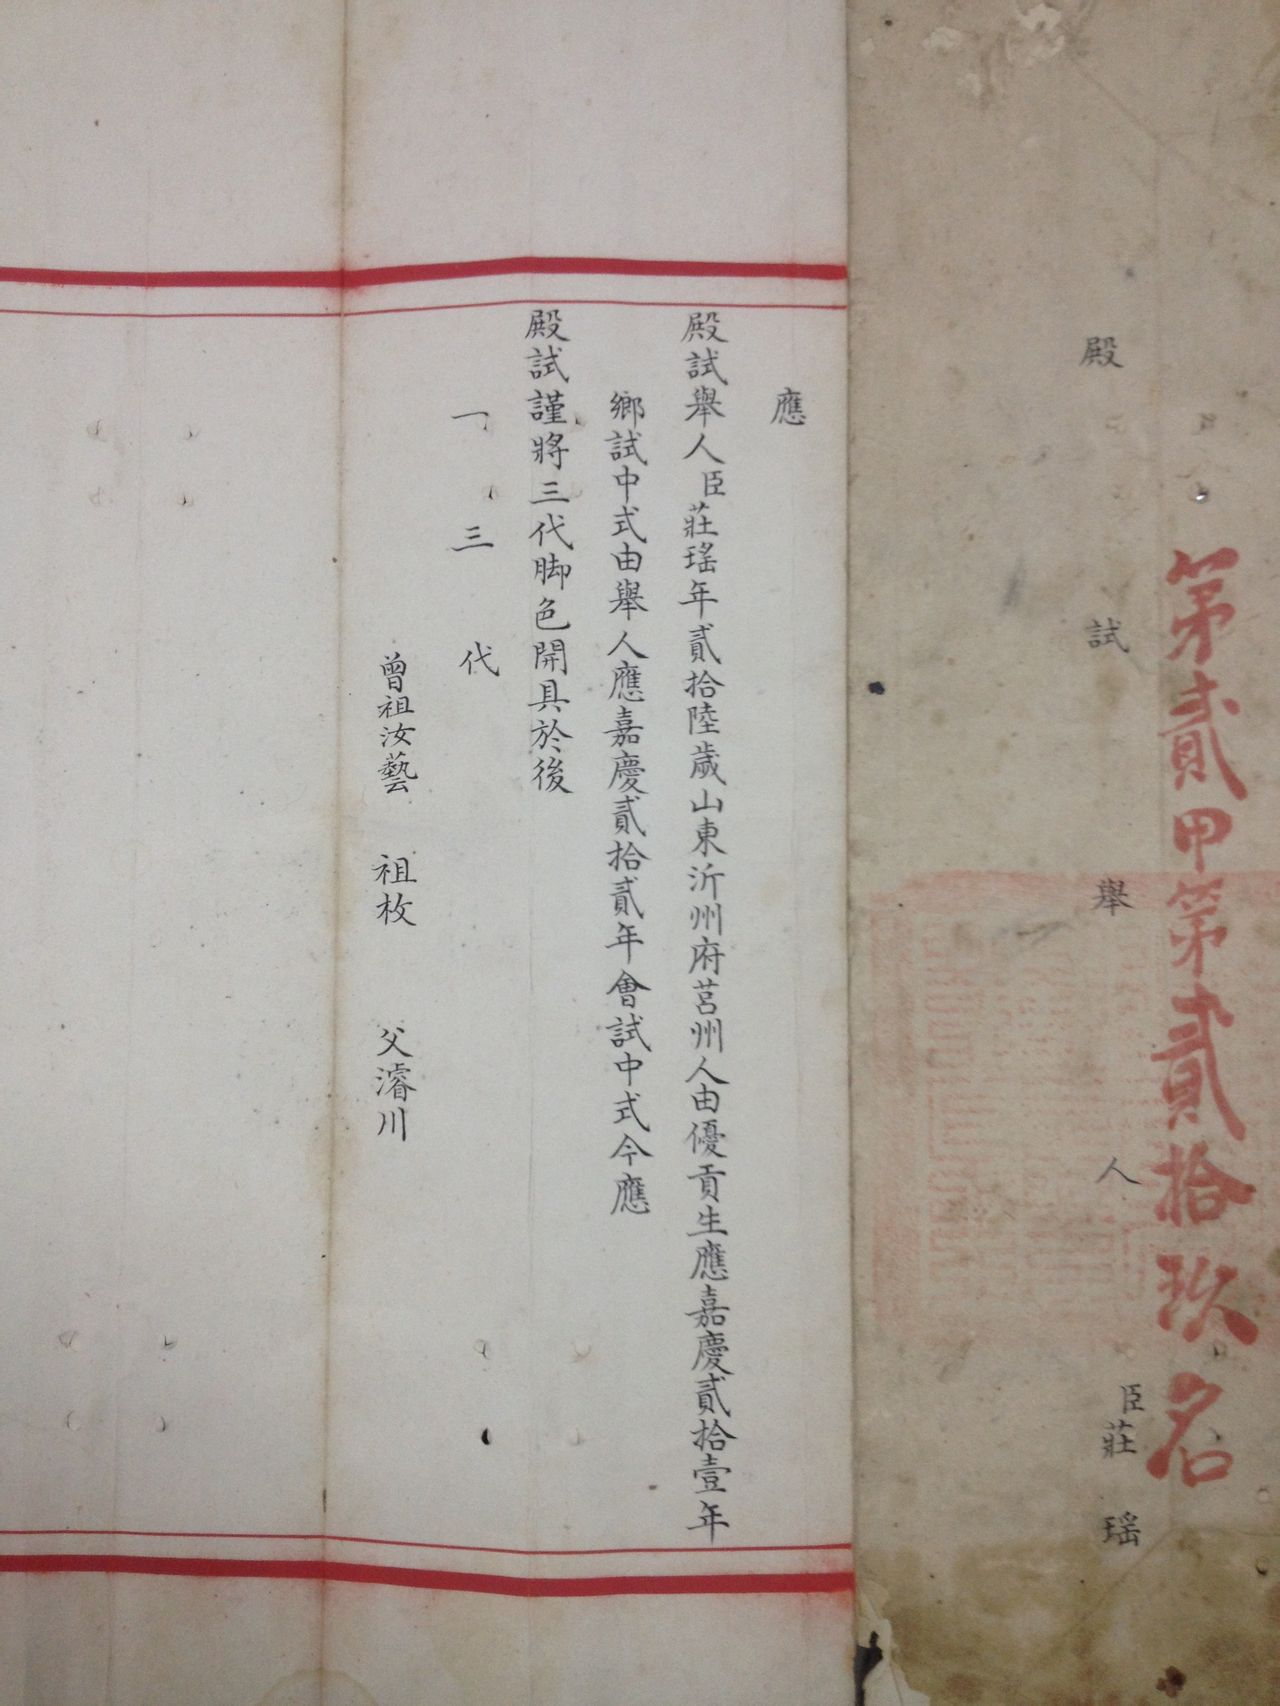 第貳甲第貳拾玖名
殿試舉人臣莊瑤
應
殿試舉人臣莊瑤年貳拾陸歲山東沂州府莒州人由優貢生應嘉慶貳拾壹年
鄉試中式由舉人應嘉慶貳拾貳年會試中式今應
殿試謹將三代脚色開具於後
一三代
曾祖汝藝 祖枚 父濬川